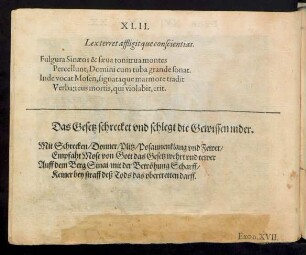 XLII.
Lex terret affligitque conscientias.
Fulgura Sinæos & sæua tonitrua montes
Percellunt, Domini cum tuba grande sonat.
Inde vocat Mosen, signataque marmore tradit
Verba: reus mortis, qui violabit, erit.
Das Gesetz schrecket vnd schlegt die Gewissen nider.
Mit Schrecken/ Donner/ Plitz/ Posaunenklang vnd Fewer/
Empfaht Mose von Gott das Gesetz wehrt vnd tewer
Auff dem Berg Sinai mit der Betröhung Scharff/
Keiner bey straff deß Tods das vbertretten darff.
EXOD XVII.